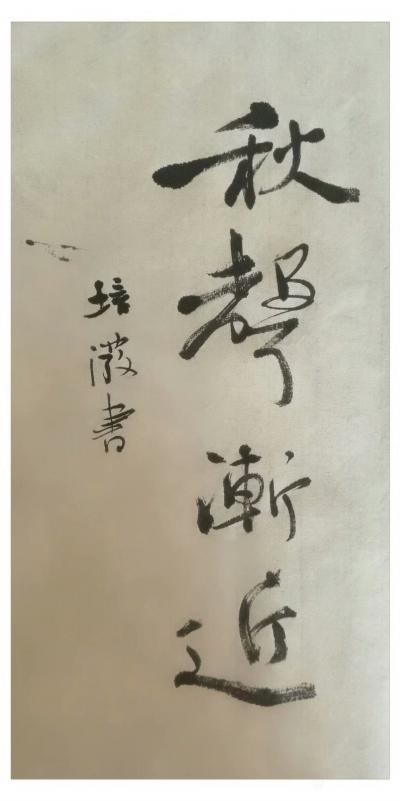 秋聲漸近
培澂書